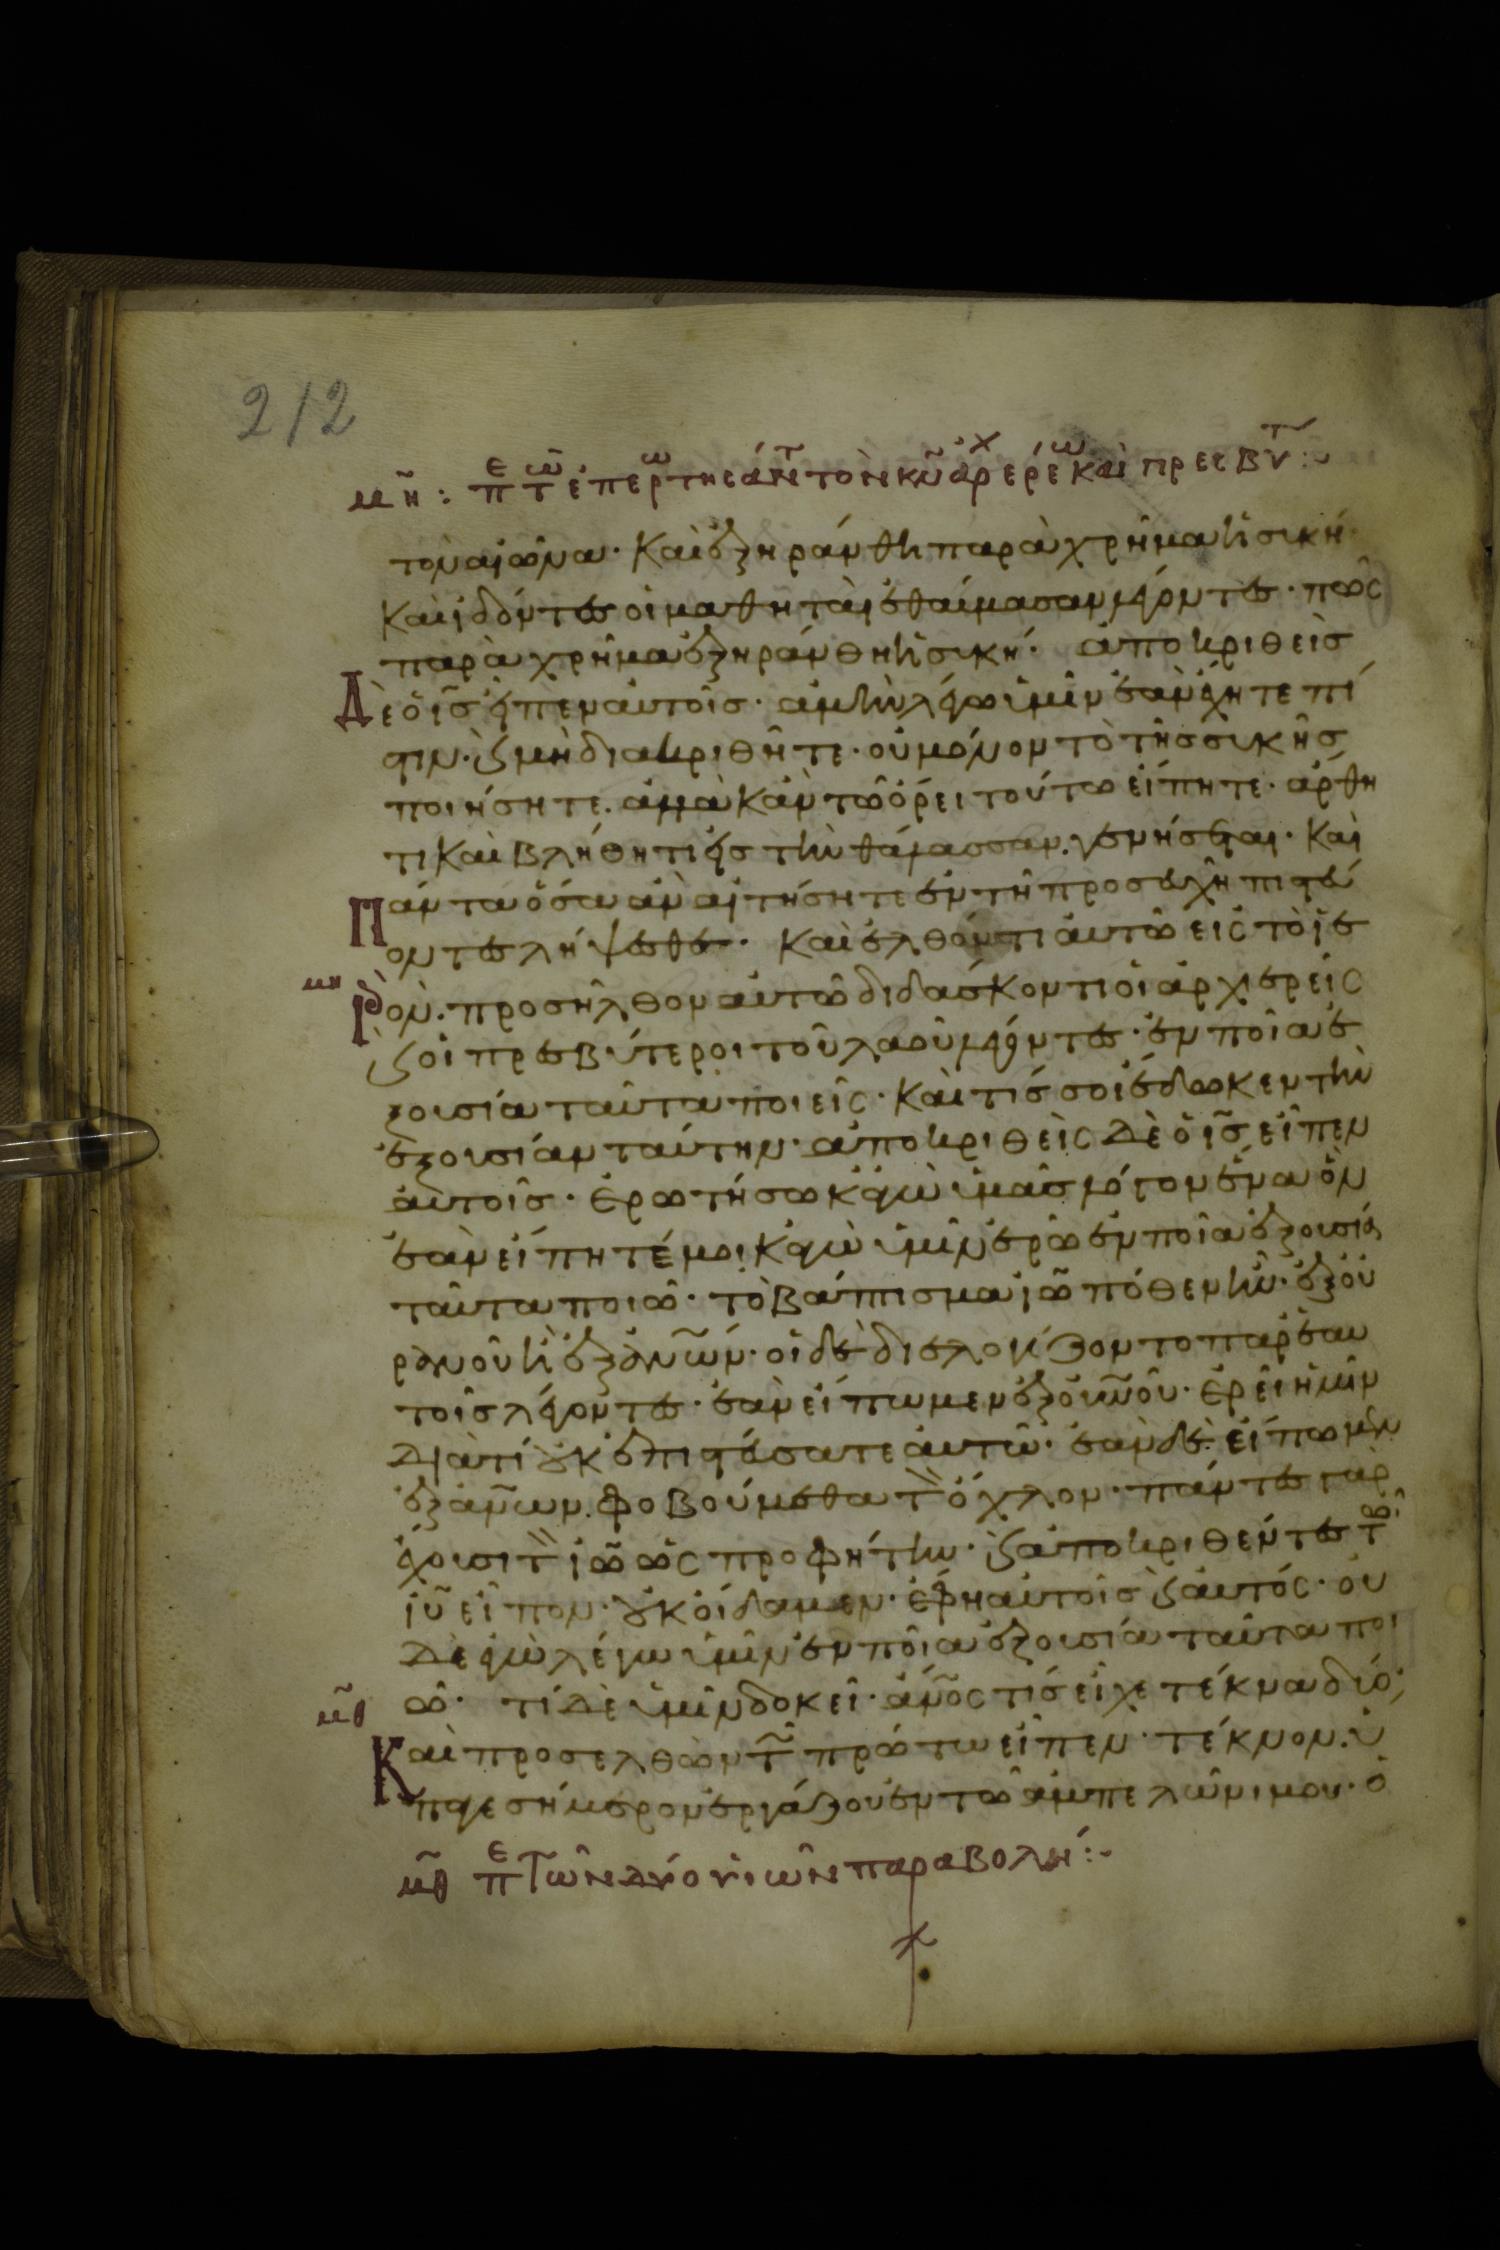 212
μη : πε τῶ ἐπερωτησάντ τὸν κν ἀρχερέω καὶ πρεσβυτ :
τον αἰῶνα · Καὶ ἐξηράνθη παρὰ χρῆμα ἡ συκῆ ·
Καὶ ἰδόντες οἱ μαθηταὶ ἐθαύμασαν λέγοντες · πῶς
παρὰ χρῆμα ἐξηράνθη ἡ συκῆ · ἀποκριθεὶς
Δὲ ὁ ις εἶπεν αὐτοῖς · ἀμὴν λέγω ὑμῖν ἐὰν ἔχητε πί
στιν · ϗ μὴ διακριθῆτε · οὐ μόνον τὸ τῆς συκῆς
ποιήσητε · ἀλλὰ κἂν τῶ ὄρει τούτω εἴπητε · ἄρθη
τι Καὶ βλήθητι εἰς τὴν θάλασσαν · γενήσεται · Καὶ
Πάντα ὅσα ἂν αἰτήσητε ἐν τῆ προσευχῆ πιστεύ
οντες λήψεσθε · Καὶ ἐλθόντι αὐτῶ εἰς τὸ ἱε
μη ρὸν · προσῆλθον αὐτῶ διδάσκοντι οἱ ἀρχιερεῖς
ϗ οἱ πρεσβύτεροι τοῦ λαοῦ λέγοντες · ἐν ποῖα ἐ
ξουσία ταῦτα ποιεῖς · Καὶ τίς σοι ἔδωκεν τὴν
ἐξουσίαν ταύτην · ἀποκριθεὶς Δὲ ὁ ις εἶπεν
αὐτοῖς · Ἐρωτήσω κἀγὼ ὑμᾶς λόγον ἕνα ὃν
ἐὰν εἴπητέ μοι Κἀγὼ ὑμῖν ἐρῶ ἐν ποῖα ἐξουσία
ταῦτα ποιῶ · τὸ βάπτισμα ιω πόθεν ἦν · ἐξ οὐ
ρανοῦ ἢ ἐξ ανων · οἱ δὲ διελογίζοντο παρ' ἑαυ
τοῖς λέγοντες · ἐὰν εἴπωμεν ἐξ ουνου · Ἐρεῖ ἡμῖν
Διατί ουκ ἐπιστεύσατε αὐτῶ · ἐὰν δὲ εἴπωμεν
ἐξ ανων · φοβούμεθα τὸν ὄχλον · πάντες γὰρ
ἔχουσι τὸν ιω ὡς προφήτην · ϗ ἀποκριθέντες τῶ
ιυ εἶπον · ουκ οἴδαμεν · ἔφη αὐτοῖς ϗ αὐτός · οὐ
Δὲ ἐγὼ λέγω ὑμῖν ἐν ποῖα ἐξουσία ταῦτα ποι
μθ ῶ · τί Δὲ ὑμῖν δοκεῖ · ανος τίς εἶχε τέκνα δύο ·
Καὶ προσελθὼν τῶ πρώτω εἶπεν · τέκνον · ὕ
παγε σήμερον ἐργάζου ἐν τῶ ἀμπελῶνι μου · ὁ
μθ πε τῶν δύο υἱῶν παραβολή :